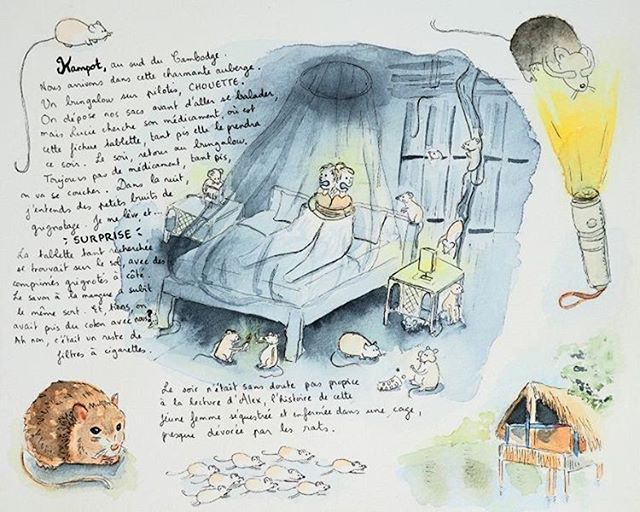 Kampot, au sud du Cambodge.
Nous arrivons dans cette charmante auberge.
Un bungalow sur pilotis, CHOUETTE.
On dépose nos sacs avant d'aller se balader,
mais Lucie cherche son médicament, où est
cette fichue tablette, tant pis elle le prendra
ce soir. Le soir, retour au bungalow.
Toujours pas de médicament, tant pis,
on va se coucher. Dans la nuit,
j'entends des petits bruits de
grignotage. Je me lève et...
SURPRISE
La tablette tant recherchée
se trouvait sur le sol avec des
comprimés grignotés à côté.
Le savon à la mangue a subit
le même sort. Et tiens on
avait pris du coton avec nous?
Ah non, c'était un reste de
filtres à cigarettes.
Ce soir n'était sans doute pas propice
à la lecture d'Alex, l'histoire de cette
jeune femme séquestrée et enfermée dans une cage,
presque dévorée par les rats.